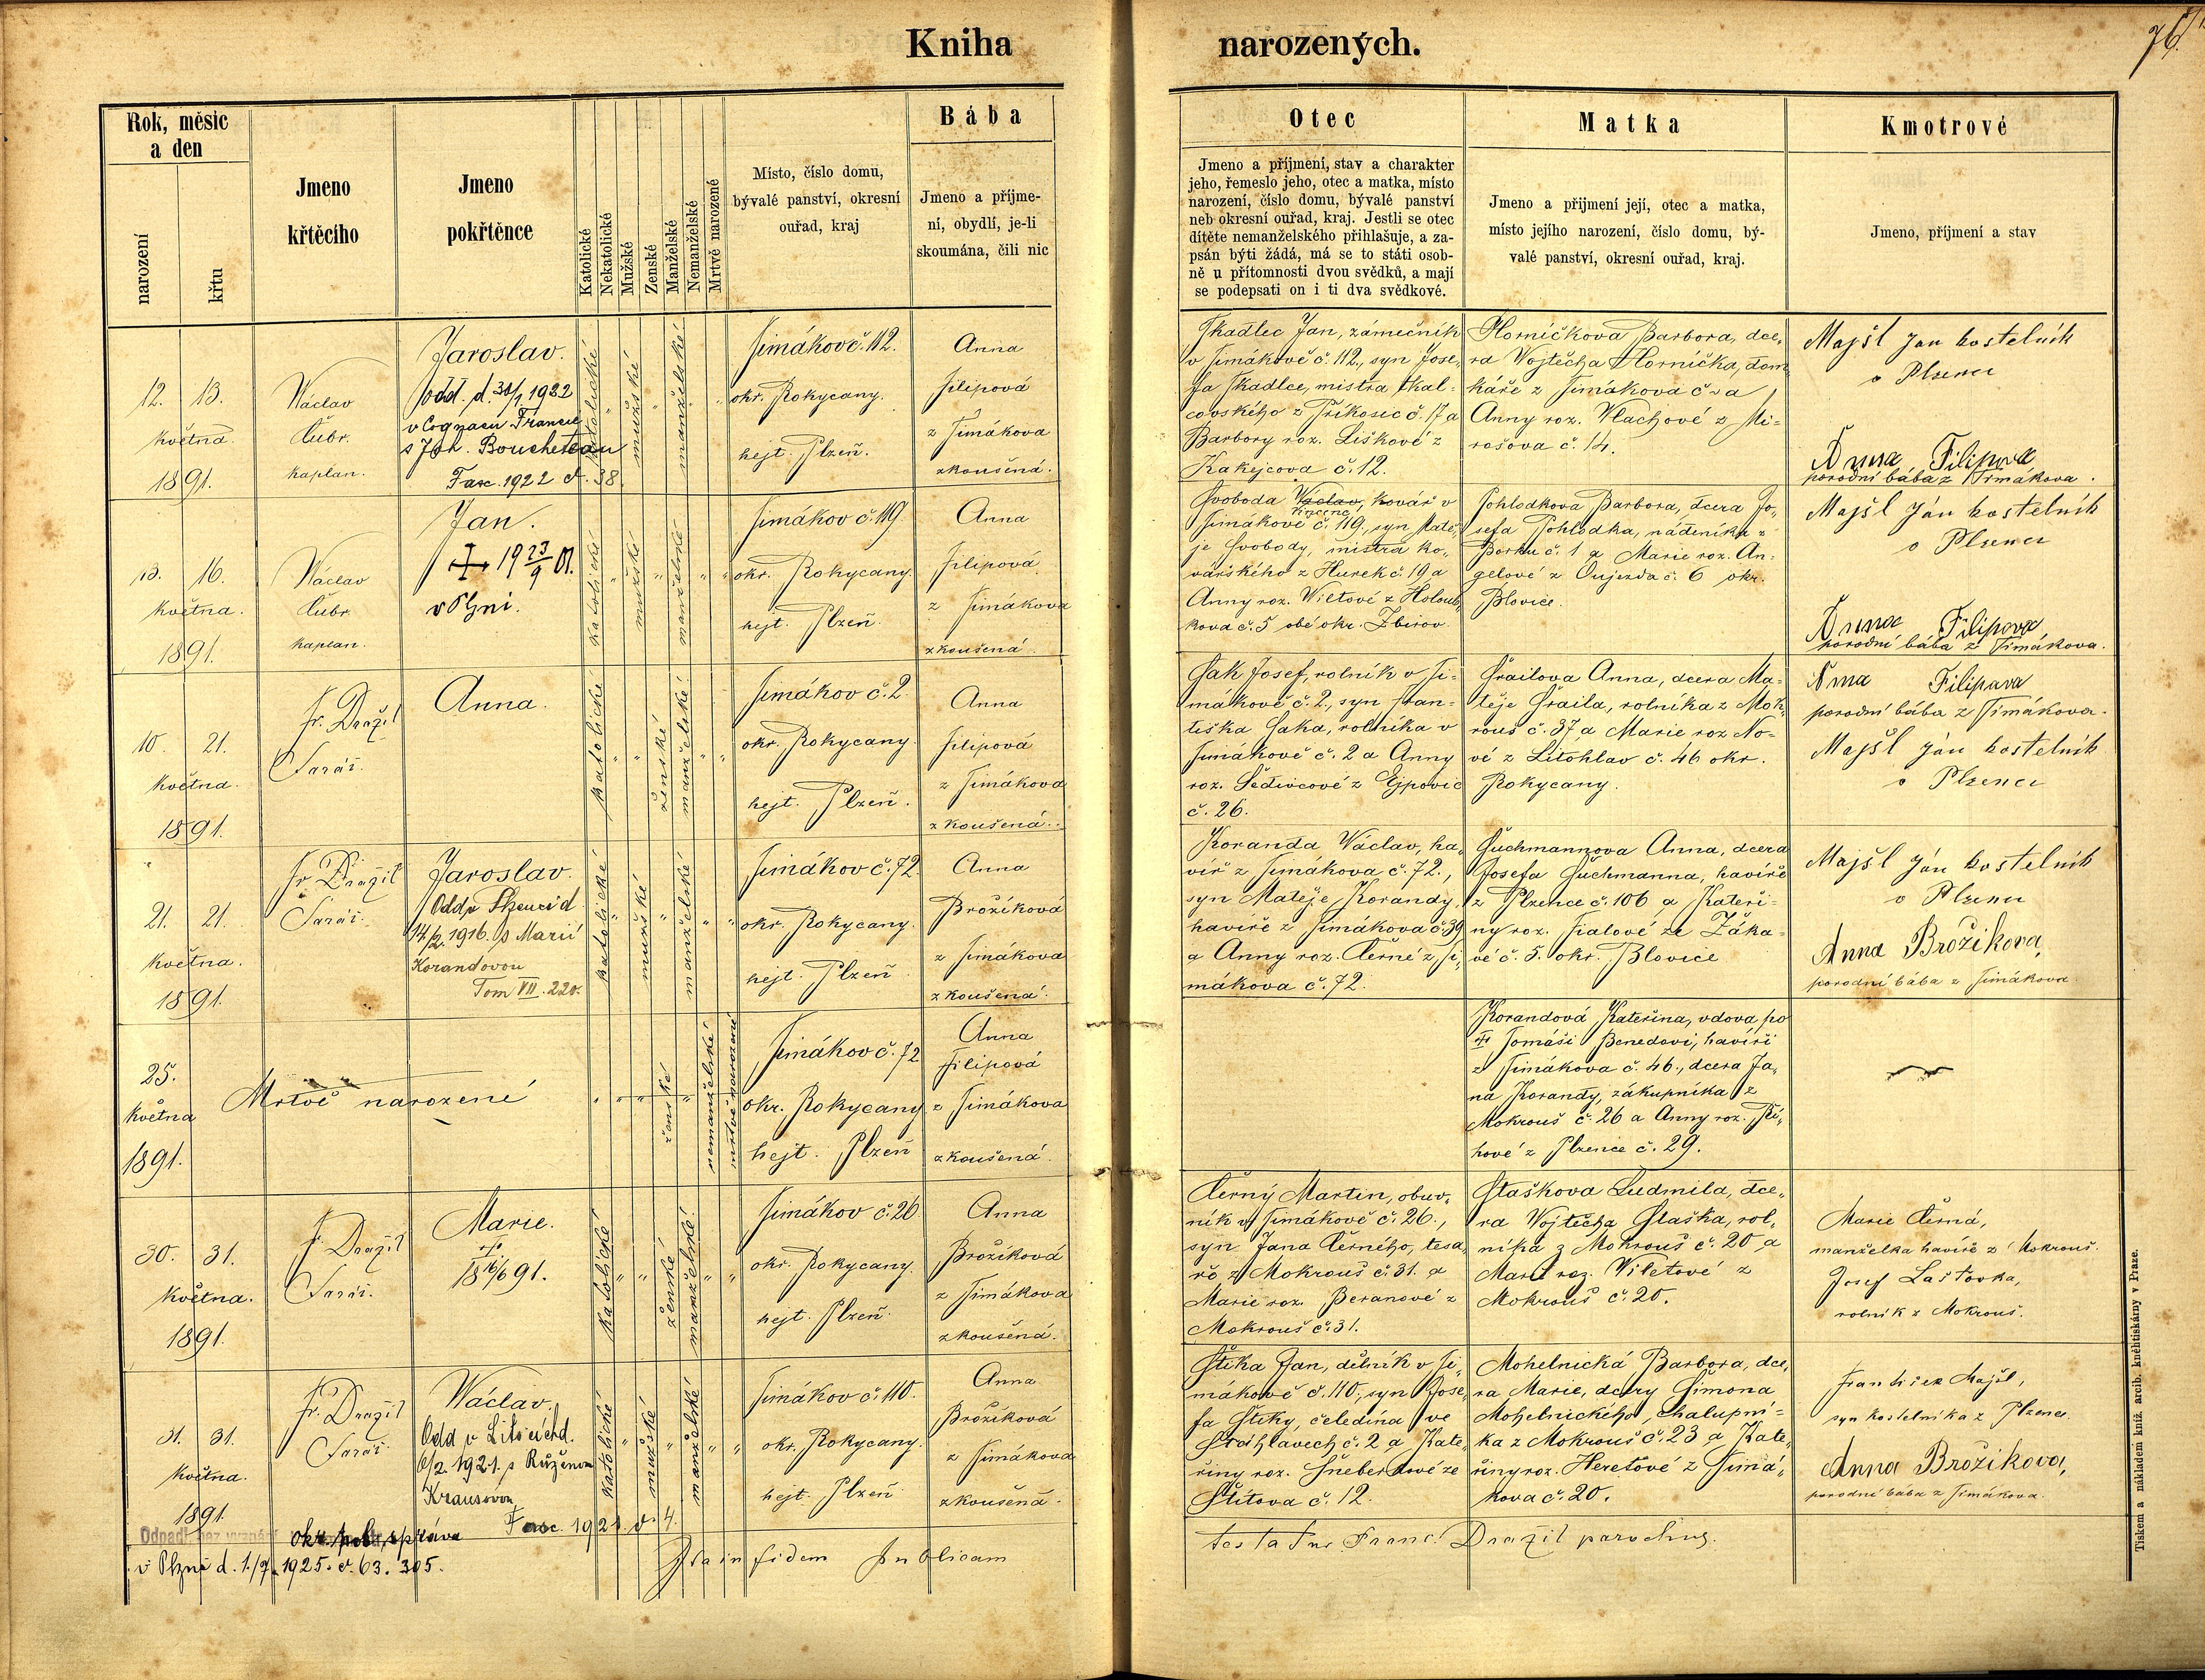 Kniha narozených.
76.
Rok, měsíc
a den
narození
křtu
Jmeno
křtěcího
Jmeno
pokřtěnce
Katolické
Nekatolické
Mužské
Ženské
Manželské
Nemanželské
Mrtvě narozené
Místo, číslo domu,
bývalé panství, okresní
ouřad, kraj
Bába
Jmeno a příjme-
ní, obydlí, je-li
skoumána, čili nic
Otec
Jmeno a příjmení, stav a charakter
jeho, řemeslo jeho, otec a matka, místo
narození, číslo domu, bývalé panství
neb okresní ouřad, kraj. Jestli se otec
dítěte nemanželského přihlašuje, a za-
psán býti žádá, má se to státi osob-
ně u přítomnosti dvou svědků, a mají
se podepsati on i ti dva svědkové.
Matka
Jmeno a přijmení její, otec a matka,
místo jejího narození, číslo domu, bý-
valé panství, okresní ouřad, kraj.
Kmotrové
Jmeno, příjmení a stav
12. 13.
května.
1891.
Václav
Čubr.
kaplan.
Jaroslav.
odd. d. 30/1 1922
v Cognacu Francie
s Joh. Boucheteau
Fasc. 1922 č. 38
katolické
mužské
manželské
Timákov č. 112.
okr. Rokycany.
hejt. Plzeň.
Anna
Filipová
z Timákova
zkoušená.
Tkadlec Jan, zámečník
v Timákově č. 112., syn Jose,
fa Tkadlce, mistra tkal-
covského z Příkosic č. 17 a
Barbory roz. Liškové z
Kakejcova č. 12.
Horníčkova Barbora, dce,
ra Vojtěcha Horníčka, dom
káře z Timákova č. a
Anny roz. Vlachové z Mi-
rošova č. 14.
Majšl Jan kostelník
v Plzenci
Anna Filipova
porodní bába z Timákova.
13. 16.
května.
1891.
Václav
Čubr
kaplan.
Jan.
19 23/9 01.
v Plzni.
katolické
mužské
manželské
Timákov č. 119.
okr. Rokycany.
hejt. Plzeň.
Anna
Filipová
z Timákova
zkoušená.
Svoboda Václav, kovář v
Timákově č. 119., syn Matě,
je Svobody, mistra ko,
vářského z Hurek č. 19 a
Anny roz. Viltové z Holoub,
kova č. 5 obé okr. Zbirov.
Pohlodkova Barbora, dcera Jo,
sefa Pohlodka, nádeníka z
Borku č. 1 a Marie roz. An-
gelové z Oujezda č. 6 okr.
Blovice.
Majšl Ján kostelník
v Plzenci
Anna Filipova
porodní bába z Timákova.
10. 21.
května.
1891.
Fr. Dražil
Farář.
Anna.
katolické
ženské
manželské
Timákov č. 2.
okr. Rokycany.
hejt. Plzeň.
Anna
Filipová
z Timákova
zkoušená.
Sak Josef, rolník v Ti-
mákově č. 2., syn Fran-
tiška Saka, rolníka v
Timákově č. 2 a Anny
roz. Šedivcové z Ejpovic
č. 26.
Šrailova Anna, dcera Ma-
těje Šraila, rolníka z Mok,
rouš č. 37 a Marie roz No-
vé z Litohlav č. 46 okr.
Rokycany.
Anna Filipava
porodní bába z Timákova.
Majšl Ján kostelník
v Plzenci
21. 21.
května.
1891.
Fr. Dražil
Farář.
Jaroslav.
Odd. v Plzenci d
14/2. 1916. s Marií
Korandovou
Tom VII. 220.
katolické
mužské
manželské
Timákov č. 72.
okr. Rokycany.
hejt. Plzeň
Anna
Brožíková
z Timákova
zkoušená.
Koranda Václav, ha,
víř z Timákova č. 72.,
syn Matěje Korandy,
havíře z Timákova č. 39
a Anny roz. Černé z Ti,
mákova č. 72.
Šuchmannova Anna, dcera
Josefa Šuchmanna, havíře
z Plzence č. 106 a Kateři-
ny roz. Fialové ze Žáka-
vé č. 5. okr. Blovice
Majšl Ján kostelník
v Plzenci
Anna Brožikova,
porodní bába z Timákova.
25.
května
1891.
Mrtvě narozené
ženské
nemanželské
mrtvě narozené
Timákov č. 72
okr. Rokycany
hejt. Plzeň
Anna
Filipová
z Timákova
zkoušená.
Korandová Kateřina, vdova po
† Tomáši Benedovi, havíři
z Timákova č. 46., dcera Ja,
na Korandy, zákupníka z
Mokrouš č. 26 a Anny roz. Ří,
hové z Plzence č. 29.
30. 31.
května.
1891.
Fr. Dražil
Farář.
Marie.
†
18 16/6 91.
katolické
ženské
manželské
Timákov č. 26
okr. Rokycany.
hejt. Plzeň.
Anna
Brožíková
z Timákova
zkoušená.
Černý Martin, obuv,
ník v Timákově č. 26.,
syn Jana Černého, tesa,
ře z Mokrouš č. 31. a
Marie roz. Beranové z
Mokrouš č. 31.
Staškova Ludmila, dce,
ra Vojtěcha Staška, rol,
níka z Mokrouš č. 20 a
Marie roz. Viletové z
Mokrouš č. 20.
Marie Černá,
manželka havíře z Mokrouš.
Josef Laštovka,
rolník z Mokrouš.
31. 31.
května.
1891.
Fr. Dražil
Farář
Václav.
Odd v Liticích d.
6/2. 1921. s Růženou
Krausovou
Fasc. 1921. č. 4.
katolické
mužské
manželské
Timákov č. 110.
okr. Rokycany.
hejt. Plzeň
Anna
Brožíková
z Timákova
zkoušená.
Štika Jan, dělník v Ti,
mákově č. 110., syn Jose,
fa Štiky, čeledína ve
Šťáhlavech č. 2 a Kate,
řiny roz. Šneberkové ze
Štítova č. 12.
Mohelnická Barbora, dce,
ra Marie, dcery Šimona
Mohelnického, chalupní-
ka z Mokrouš č. 23 a Kate,
řiny roz. Heretové z Timá,
kova č. 20.
František Majšl,
syn kostelníka z Plzence.
Anna Brožikova,
porodní bába z Timákova.
Odpadl bez vyznání okr. pol. správa
v Plzni d. 1./7. 1925. č. 63. 305.
Ita in fidem publicam
testatur Franc. Dražil parochus.
Tiskem a nákladem kníž. arcib. kněhtiskárny v Praze.